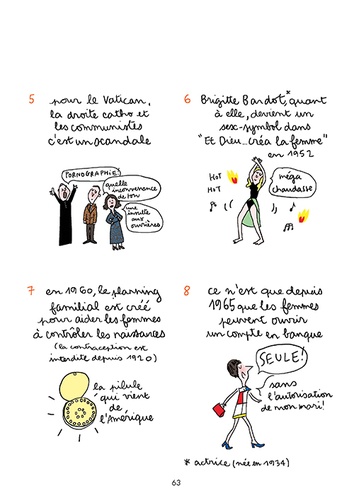 5 pour le Vatican,
la droite catho et
les communistes
c'est un scandale
PORNOGRAPHIE!
quelle
inconvenance
de ton
une
insulte
aux
ouvrières
6 Brigitte Bardot,* quant
à elle, devient un
sex-symbol dans
"Et Dieu... créa la femme"
en 1952
HOT
HOT
méga
chaudasse
7 en 1960, le planning
familial est créé
pour aider les femmes
à contrôler les naissances
(la contraception est
interdite depuis 1920)
la pilule
qui vient
de
l'Amérique
8 ce n'est que depuis
1965 que les femmes
peuvent ouvrir
un compte en banque
SEULE!
sans
l'autorisation
de mon mari!
* actrice (née en 1934)
63